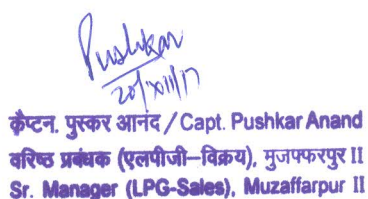 Pushkar
20/XII/17
कैप्टन. पुस्कर आनंद / Capt. Pushkar Anand
वरिष्ठ प्रबंधक (एलपीजी–विक्रय), मुजफ्फरपुर II
Sr. Manager (LPG-Sales), Muzaffarpur II